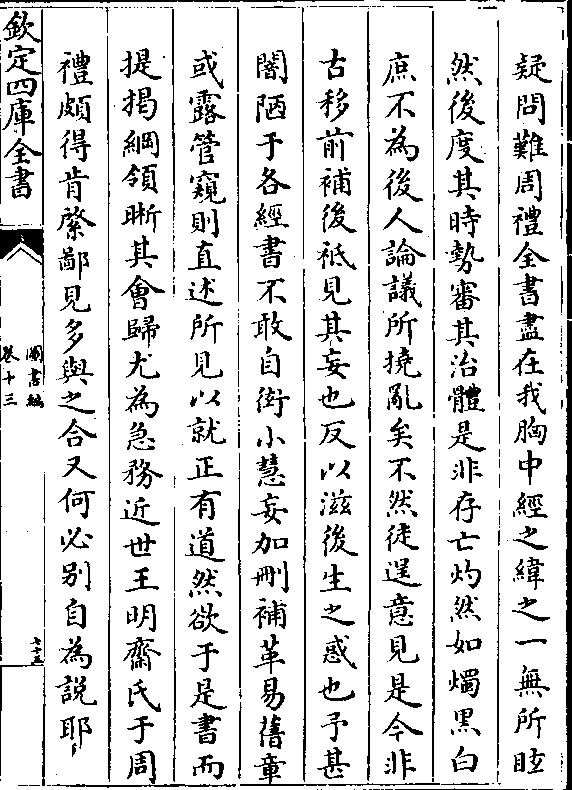 疑問難周禮全書盡在我胸中經之緯之一無所眩
然後度其時勢審其治體是非存亡灼然如燭黑白
庶不為後人論議所撓亂矣不然徒逞意見是今非
古移前補後祗見其妄也反以滋後生之惑也予甚
闇陋于各經書不敢自衒小慧妄加刪補革易舊章
或露管窺則直述所見以就正有道然欲于是書而
提揭綱領晰其會歸尤為急務近世王明齋氏于周
禮頗得肯綮鄙見多與之合又何必别自為説耶
欽定四庫全書
圖書編
卷十三
七十五